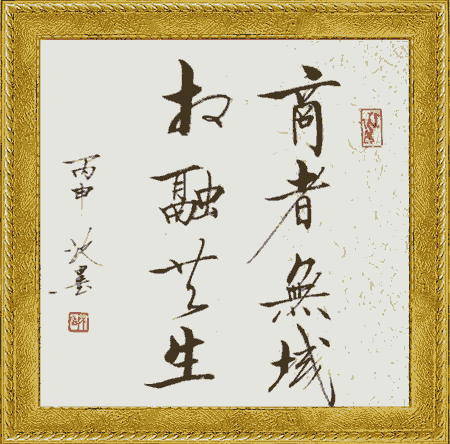 商者無域
相融共生
丙申 次墨